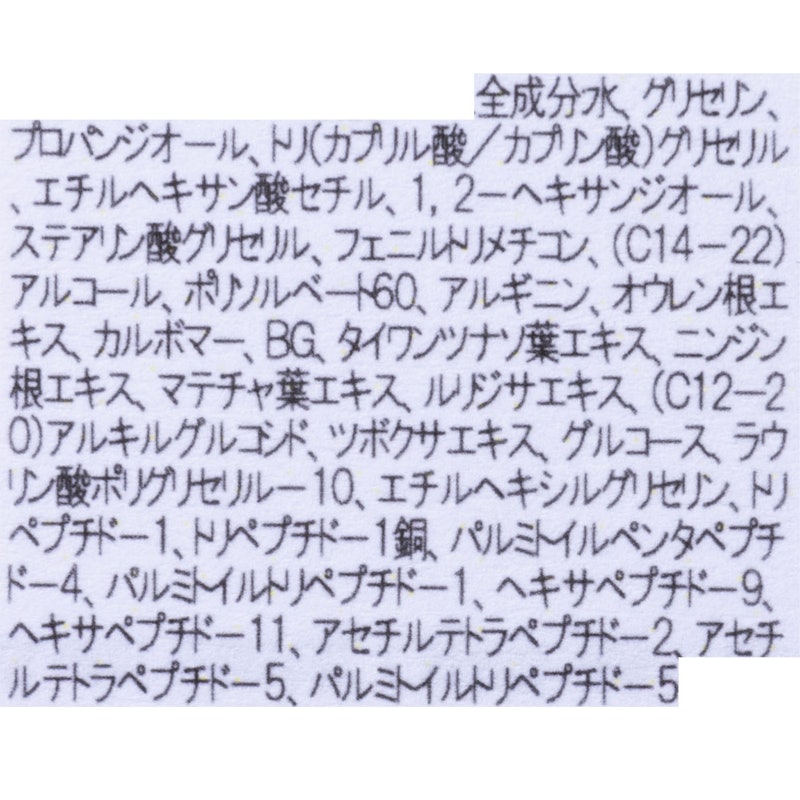 全成分水、グリセリン、
プロパンジオール、トリ(カプリル酸/カプリン酸)グリセリル
、エチルヘキサン酸セチル、1,2-ヘキサンジオール、
ステアリン酸グリセリル、フェニルトリメチコン、(C14-22)
アルコール、ポリソルベート60、アルギニン、オウレン根エ
キス、カルボマー、BG、タイワンツナソ葉エキス、ニンジン
根エキス、マテチャ葉エキス、ルリジサエキス、(C12-2
0)アルキルグルコシド、ツボクサエキス、グルコース、ラウ
リン酸ポリグリセリル-10、エチルヘキシルグリセリン、トリ
ペプチド-1、トリペプチド-1銅、パルミトイルペンタペプチ
ド-4、パルミトイルトリペプチド-1、ヘキサペプチド-9、
ヘキサペプチド-11、アセチルテトラペプチド-2、アセチ
ルテトラペプチド-5、パルミトイルトリペプチド-5